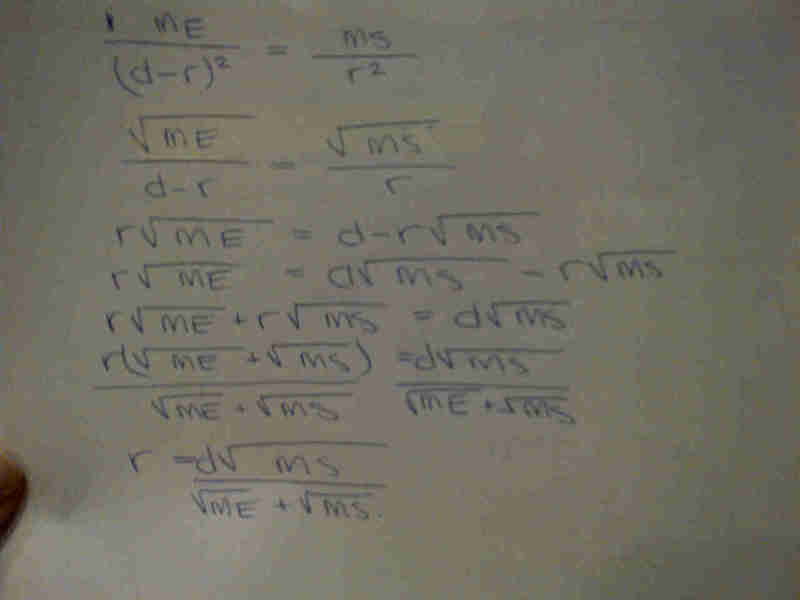 mE/(d-r)² = ms/r²
√mE/d-r = √ms/r
r√mE = d-r√ms
r√mE = d√ms - r√ms
r√mE + r√ms = d√ms
r(√mE + √ms)/√mE + √ms = d√ms/√mE + √ms
r = d√ms/√mE + √ms